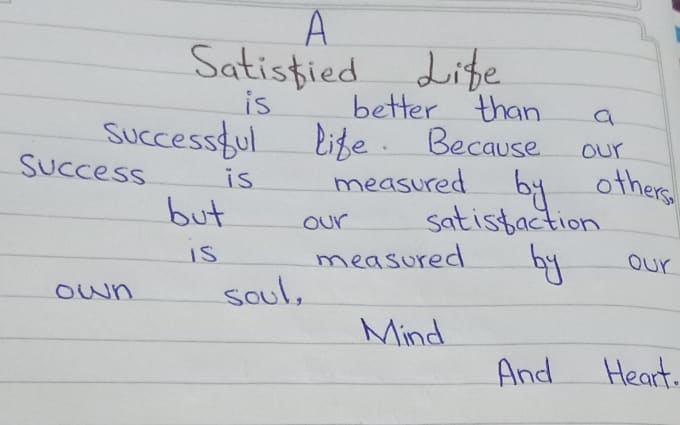 A
Satisfied Life
is better than a
successful life. Because our
success is measured by others,
but our satisfaction
is measured by our
own soul,
Mind
And Heart.